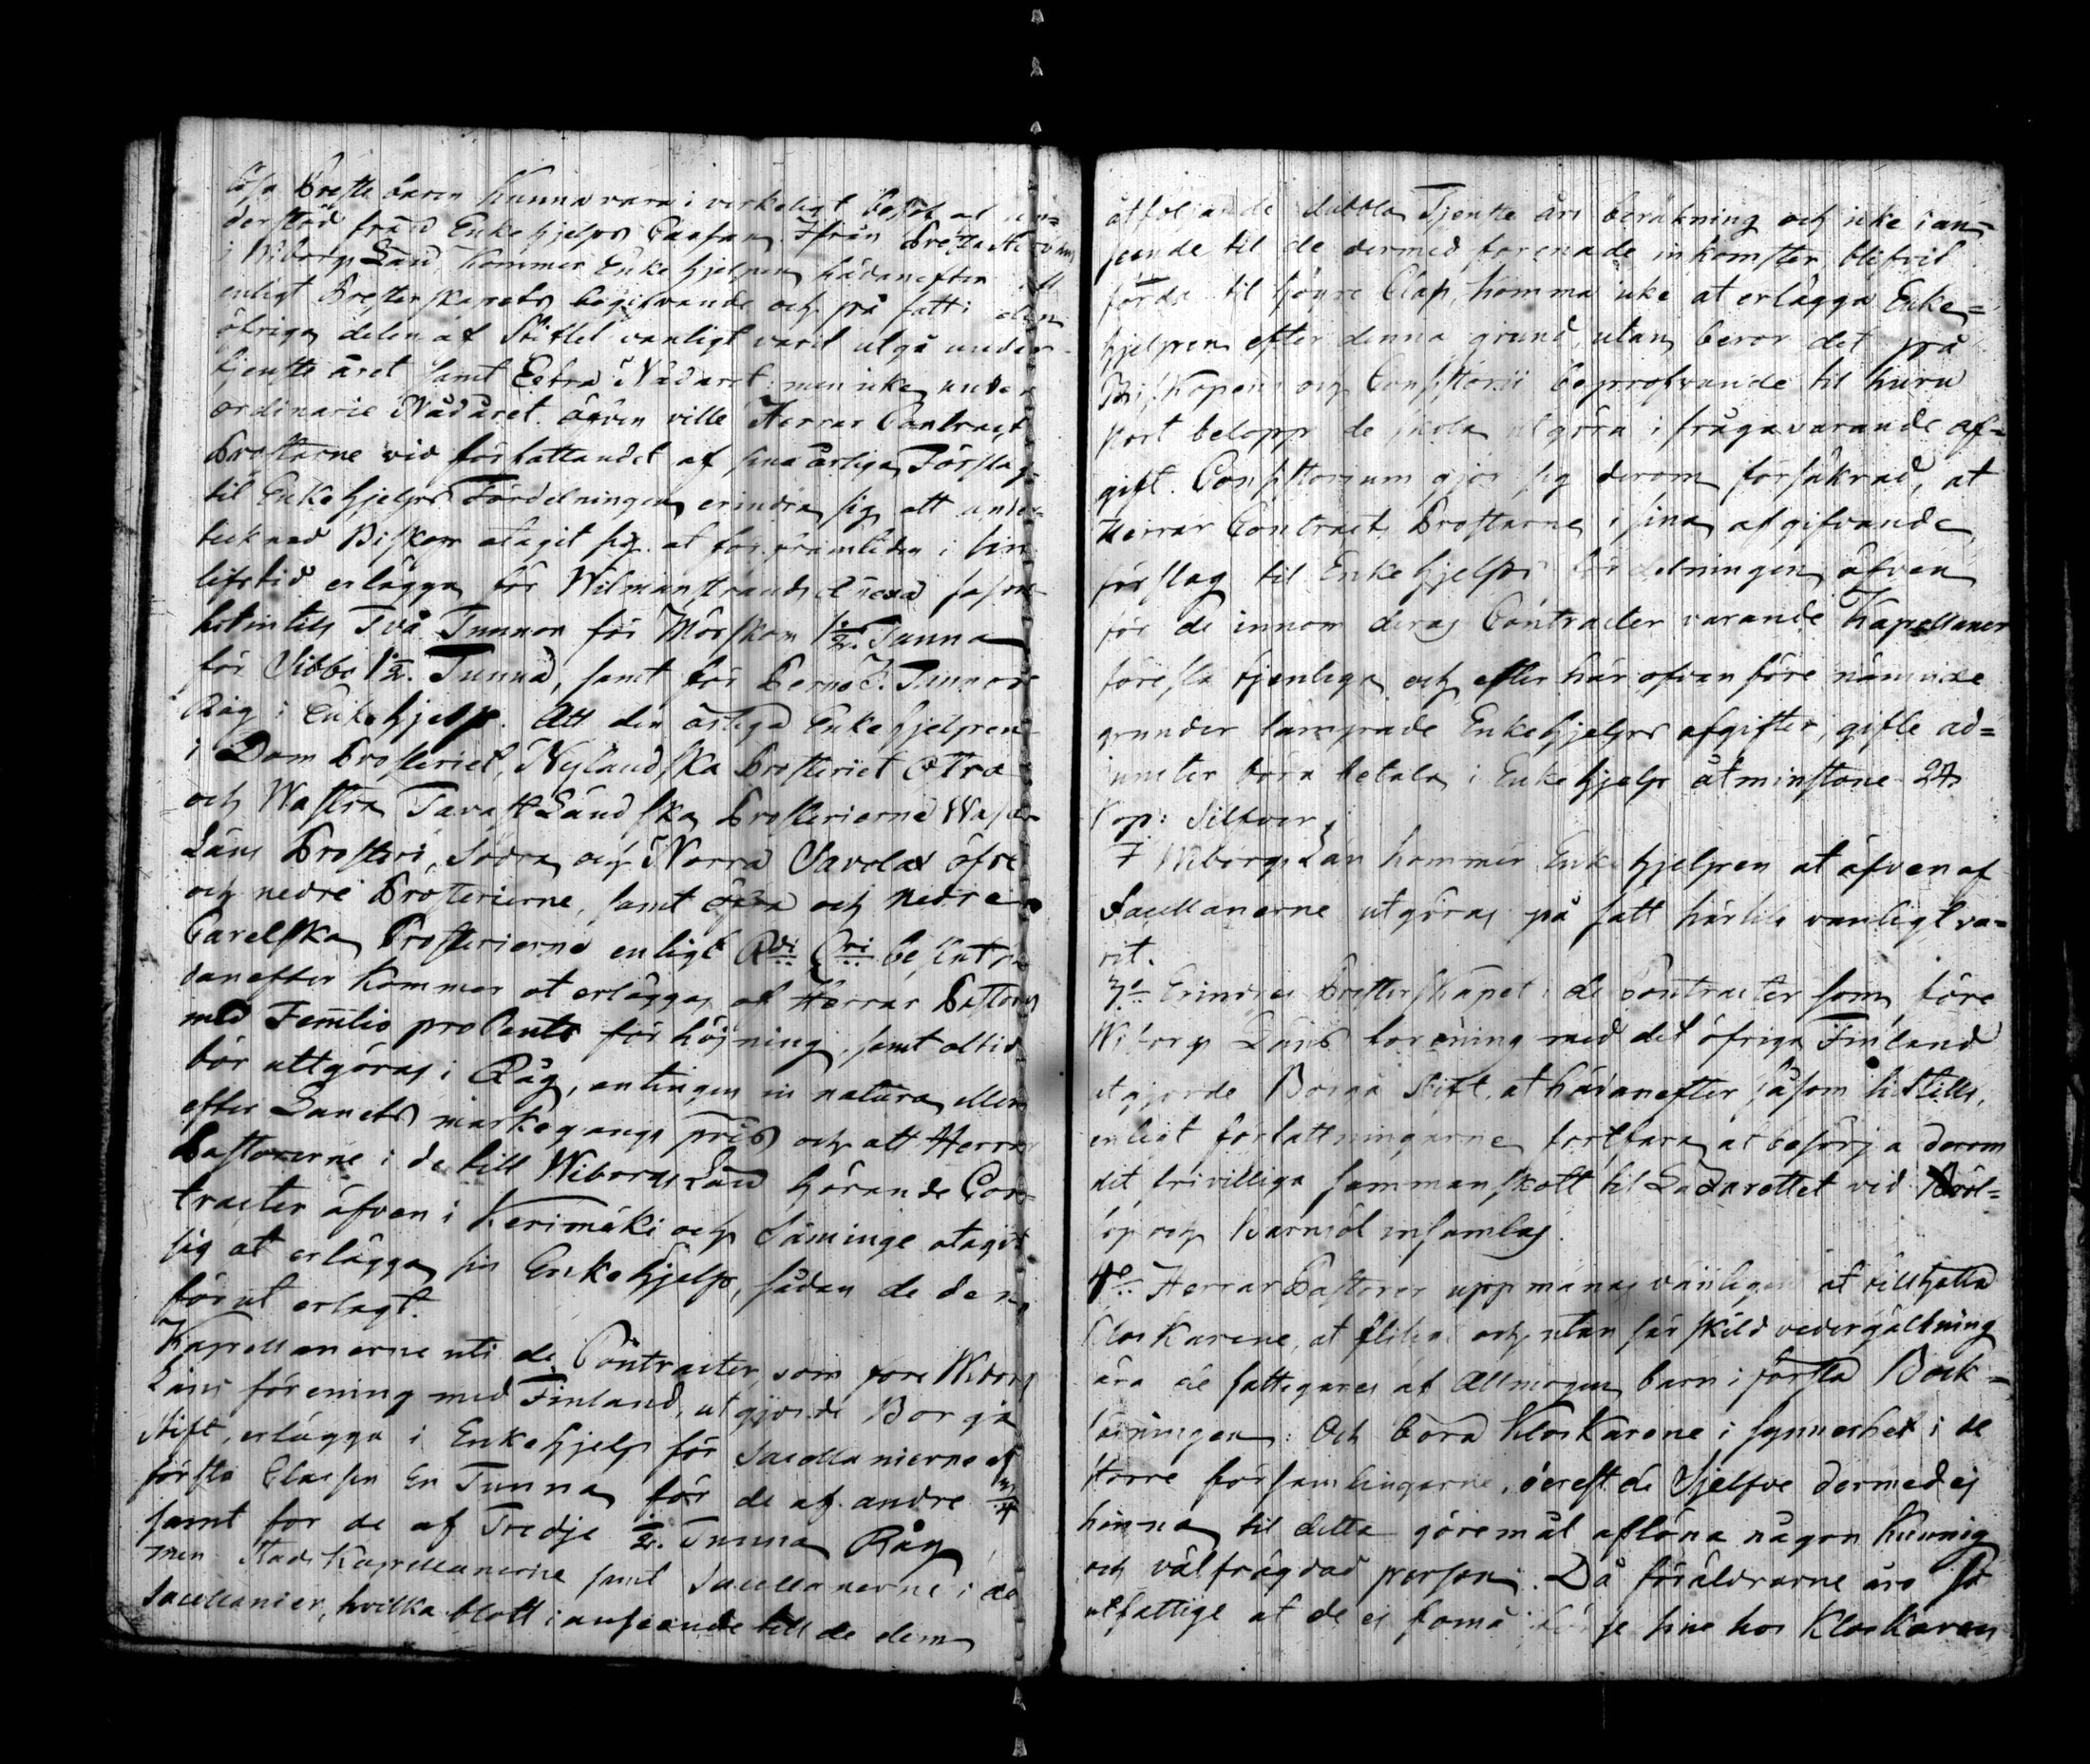 lösa Prestebaren kunna vara i verkeligt behof af un-
derstöd från Enkehjelps Cassan. Ifrån Prestasterbhus
i Wiborgs Län, kommer Enkehjelpen hädanefter
enligt Presterskapets begifvande och på sätt i den
öfriga delen af Stiftet vanligt varit utgå under
tjenste året samt Extra Nådaret, men icke under
ordinarie Nådåret. äfven ville Herrar Contracts
Prostarne vid författandet af sina årliga Förslag
til Enkehjelps Fördelningen erindra sig att under-
tecknad Biskop åtagit sig at för framtiden i sin
lifstid erlägga för Wilmanstrands & Lexå såsom
hitintils Två Tunnor för Mörskom 1 1/2 Tunna
för Sibbo 1 1/2. Tunna, samt för Perno 3. Tunnor
Råg i Enkehjelp. Att den årliga Enkehjelpen
i Dom Prosteriet, Nylandska Prosteriet Östra
och Westra Tavastländska Prosterierne Wasa
Läns Prosteri, Södra och Norra Savolax öfre
och nedre Prosterierne, samt öfra och nedre
Carelska Prosterierne enligt Rdi Cri beslut
danefter kommer at erläggas af Herrar Pastorer
med Femtio pro Cents förhöjning, samt altid
bör uttgöras i Råg, antingen in natura eller
efter Länets markegangs pris och att Herrar
Pastorerne i de till Wiborgs Län hörande Con-
tracter äfven i Kerimäki och Säminge åtagit
sig at erlägga sin Enkehjelp, sådan de den
förut erlagt.
Kapellanerne uti de Contracter, som före Wiborgs
Läns förening med Finland, utgjorde Borgå
Stift, erlägga i Enkehjelp för Sacellanierne af
första Classen En Tunna för de af andre 3/4
samt för de af Tredje 1/2. Tunna Råg,
men Stads Kapellanerne samt Sacellanerne i de
Sacellanier, hvilka blott i anseende till de dem
åtföljande dubbla Tjenste års beräkning och icke i an-
seende til de dermed förenade inkomster, blifvit
förda til högre Class, komma icke at erlägga Enke-
hjelpen efter denna grund, utan beror det på
Biskopens och Consistorii bepröfvande til huru
stort belopp de skola utgöra i frågavarande af-
gift. Consistorium gjör sig derom försäkrad, at
Herrar Contracts Prostarne i sina afgifvande
förslag til Enkehjelps fördelningen äfven
för de innom deras Contracter varande Kapellaner
föreslå tjenliga och efter här ofvanföre nämnde
grunder lämpade Enkehjelps afgifter, gifte ad-
juncter böra betala i Enkehjelp åtminstone 24
Kop: Silfver.
I Wiborgs Län kommer Enkehjelpen at äfven af
Sacellanerne utgöras på sätt härtils vanligt va-
rit.
3o Erindras Presterskapet i de Contracter som, före
Wiborgs Läns förening med det öfriga Finland
utgjorde Borgå Stift, at hädanefter såsom hittills,
enligt författningarne fortfara at besörja derom
det frivilliga sammanskott til Lazarettet vid Bröl-
lop och Barnsöl insamlas.
4o Herrar Pastorer uppmanas vänligen at tillhålla
Klockarene, at flitigt och utan särskild vedergällning
lära de fattigares af Allmogen barn i första Bok-
läsningen: Och böra Klockarene i synnerhet i de
större församlingarne, derest de Sjelfve dermed ej
hinna til detta göremål aflöna någon kunnig
och välfrägdad person. Då föräldrarne äro så
utfattige at de ej förmå förse sine hos Klockaren